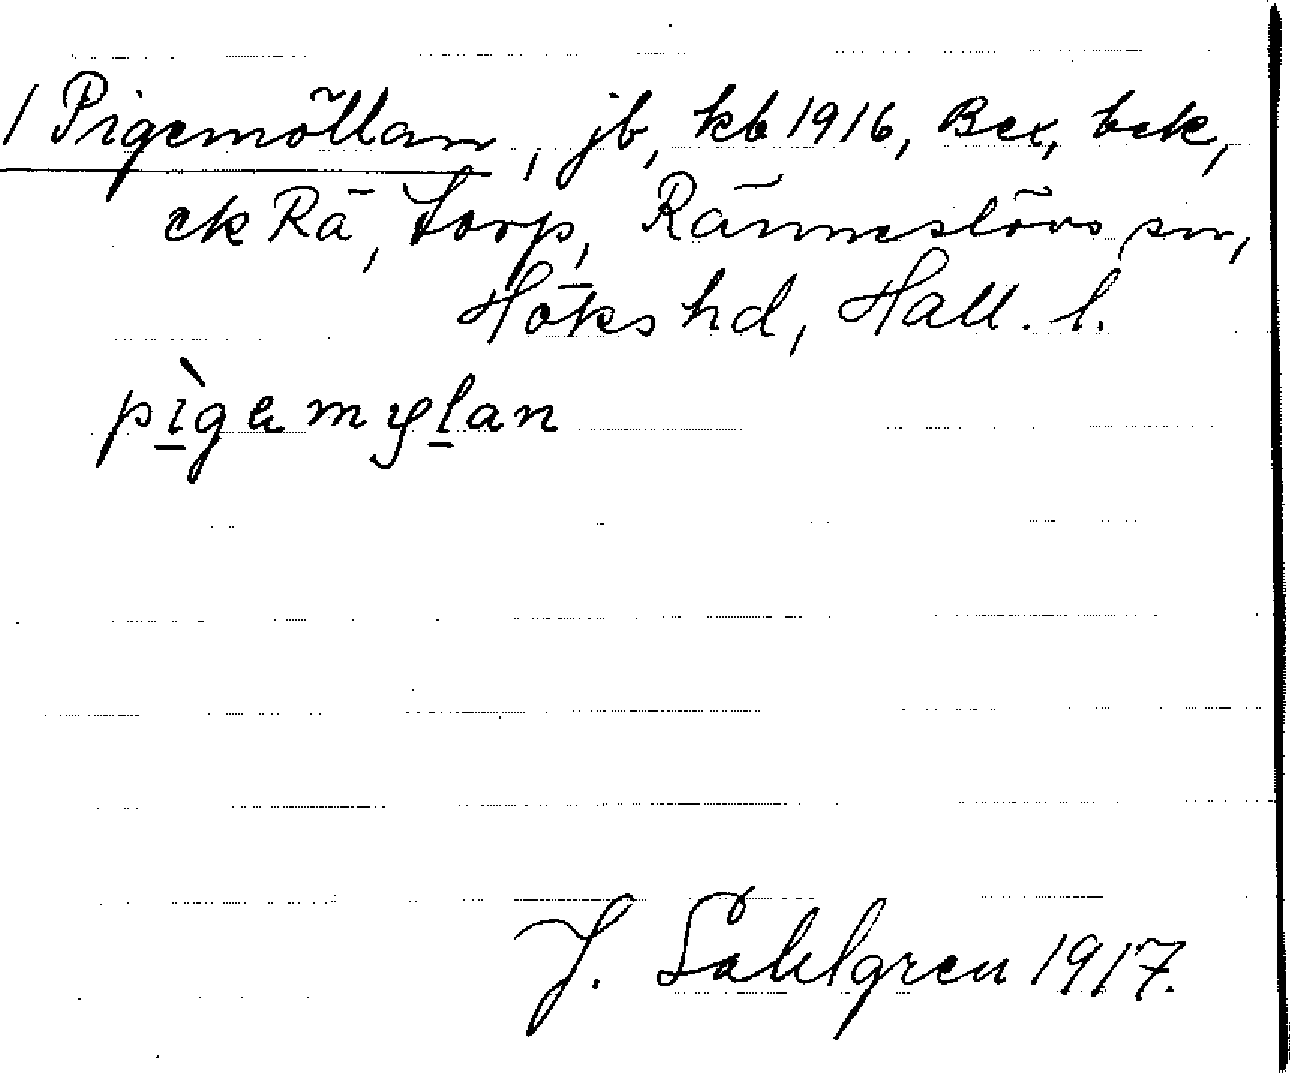 1 Pigemöllan, jb, kb 1916, Bex, bek,
ek Rä, torp, Ränneslövs sn,
Höks hd, Hall. l.
pìgamylan
J. Sahlgren 1917.